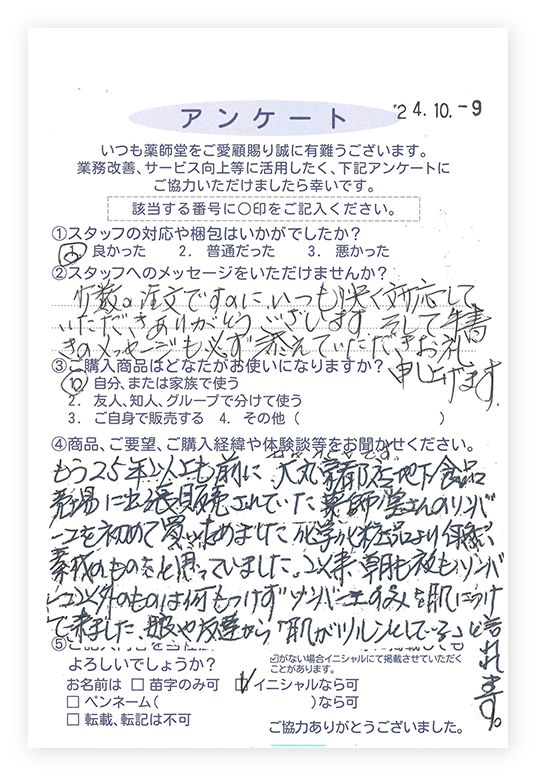 '24.10.-9
アンケート
いつも薬師堂をご愛顧賜り誠に有難うございます。
業務改善、サービス向上等に活用したく、下記アンケートに
ご協力いただけましたら幸いです。
該当する番号に○印をご記入ください。
①スタッフの対応や梱包はいかがでしたか?
1. 良かった 2. 普通だった 3. 悪かった
②スタッフへのメッセージをいただけませんか?
少数の注文ですのに、いつも快く対応して
いただきありがとうございます そして手書
きのメッセージも必ず添えていただきお礼
申し上げます。
③ご購入商品はどなたがお使いになりますか?
1. 自分、または家族で使う
2. 友人、知人、グループで分けて使う
3. ご自身で販売する 4. その他( )
④商品、ご要望、ご購入経緯や体験談等をお聞かせください。
もう25年以上も前に 大丸京都店地下食品
売場に出張販売されていた 薬師堂さんのソンバ
ーユを初めて買い求めました 化学化粧品より
のものをと思っていました。以来 朝も夜もソンバ
ーユ以外のものは何もつけず ソンバーユのみを肌につけ
て来ました、娘や友達から「肌がツルンとしている」と言われます。
⑤
よろしいでしょうか?
☑がない場合イニシャルにて掲載させていただく
ことがあります。
お名前は □ 苗字のみ可 ☑ イニシャルなら可
□ ペンネーム( )なら可
□ 転載、転記は不可
ご協力ありがとうございました。